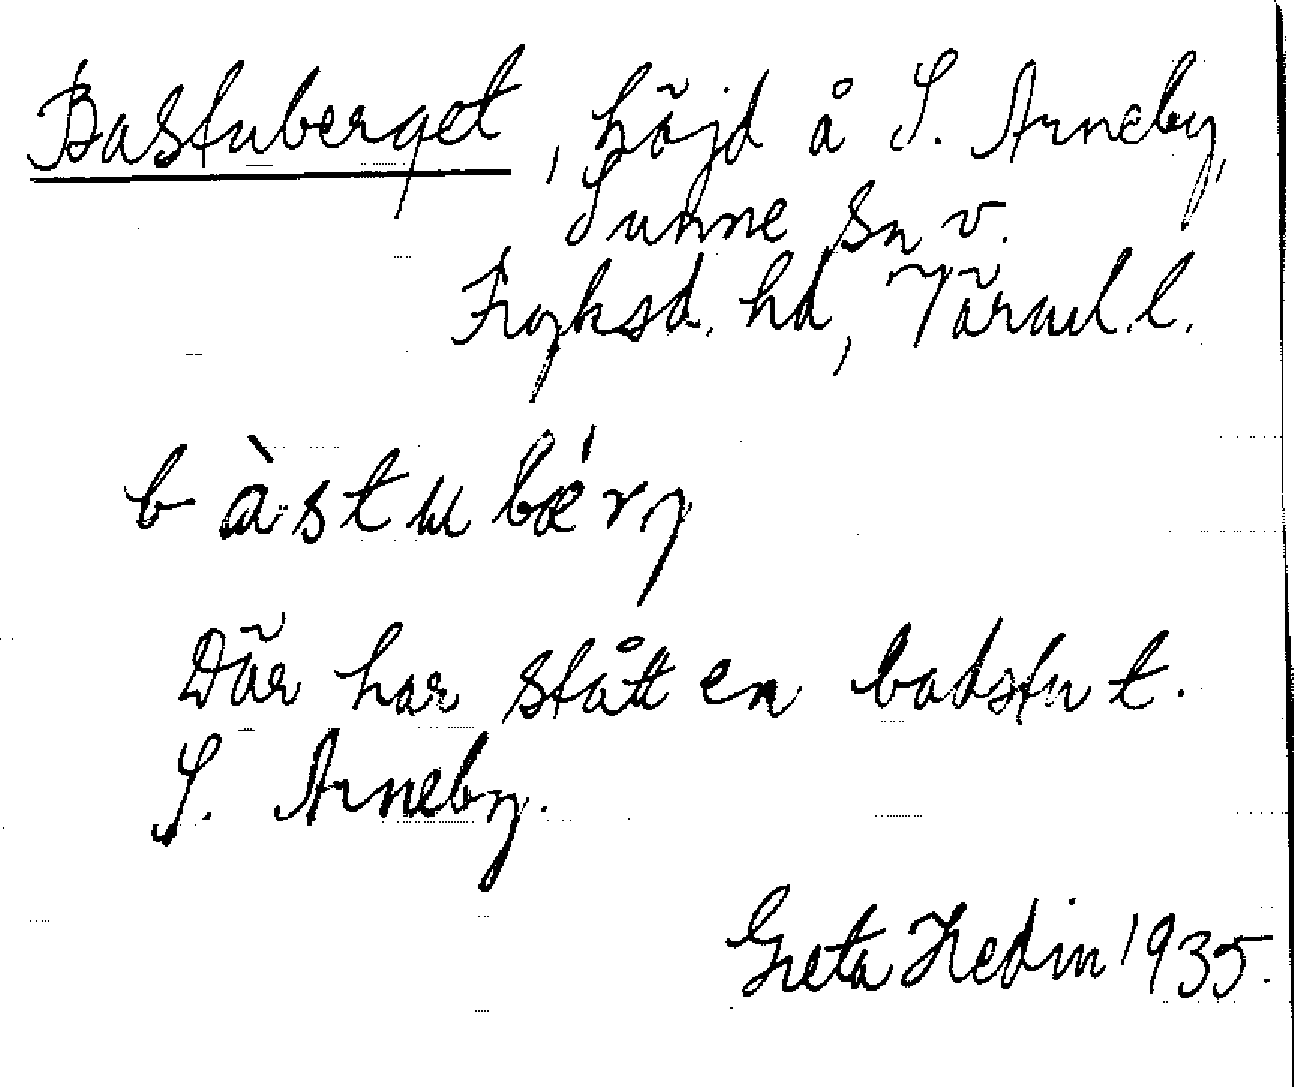 Bastuberget, höjd å S. Arneby,
Sunne sn v.
Fryksd. hd, Värml. l.
b àstubǽrg
Där har stått en badstu t.
S. Arneby.
Greta Hedin 1935.